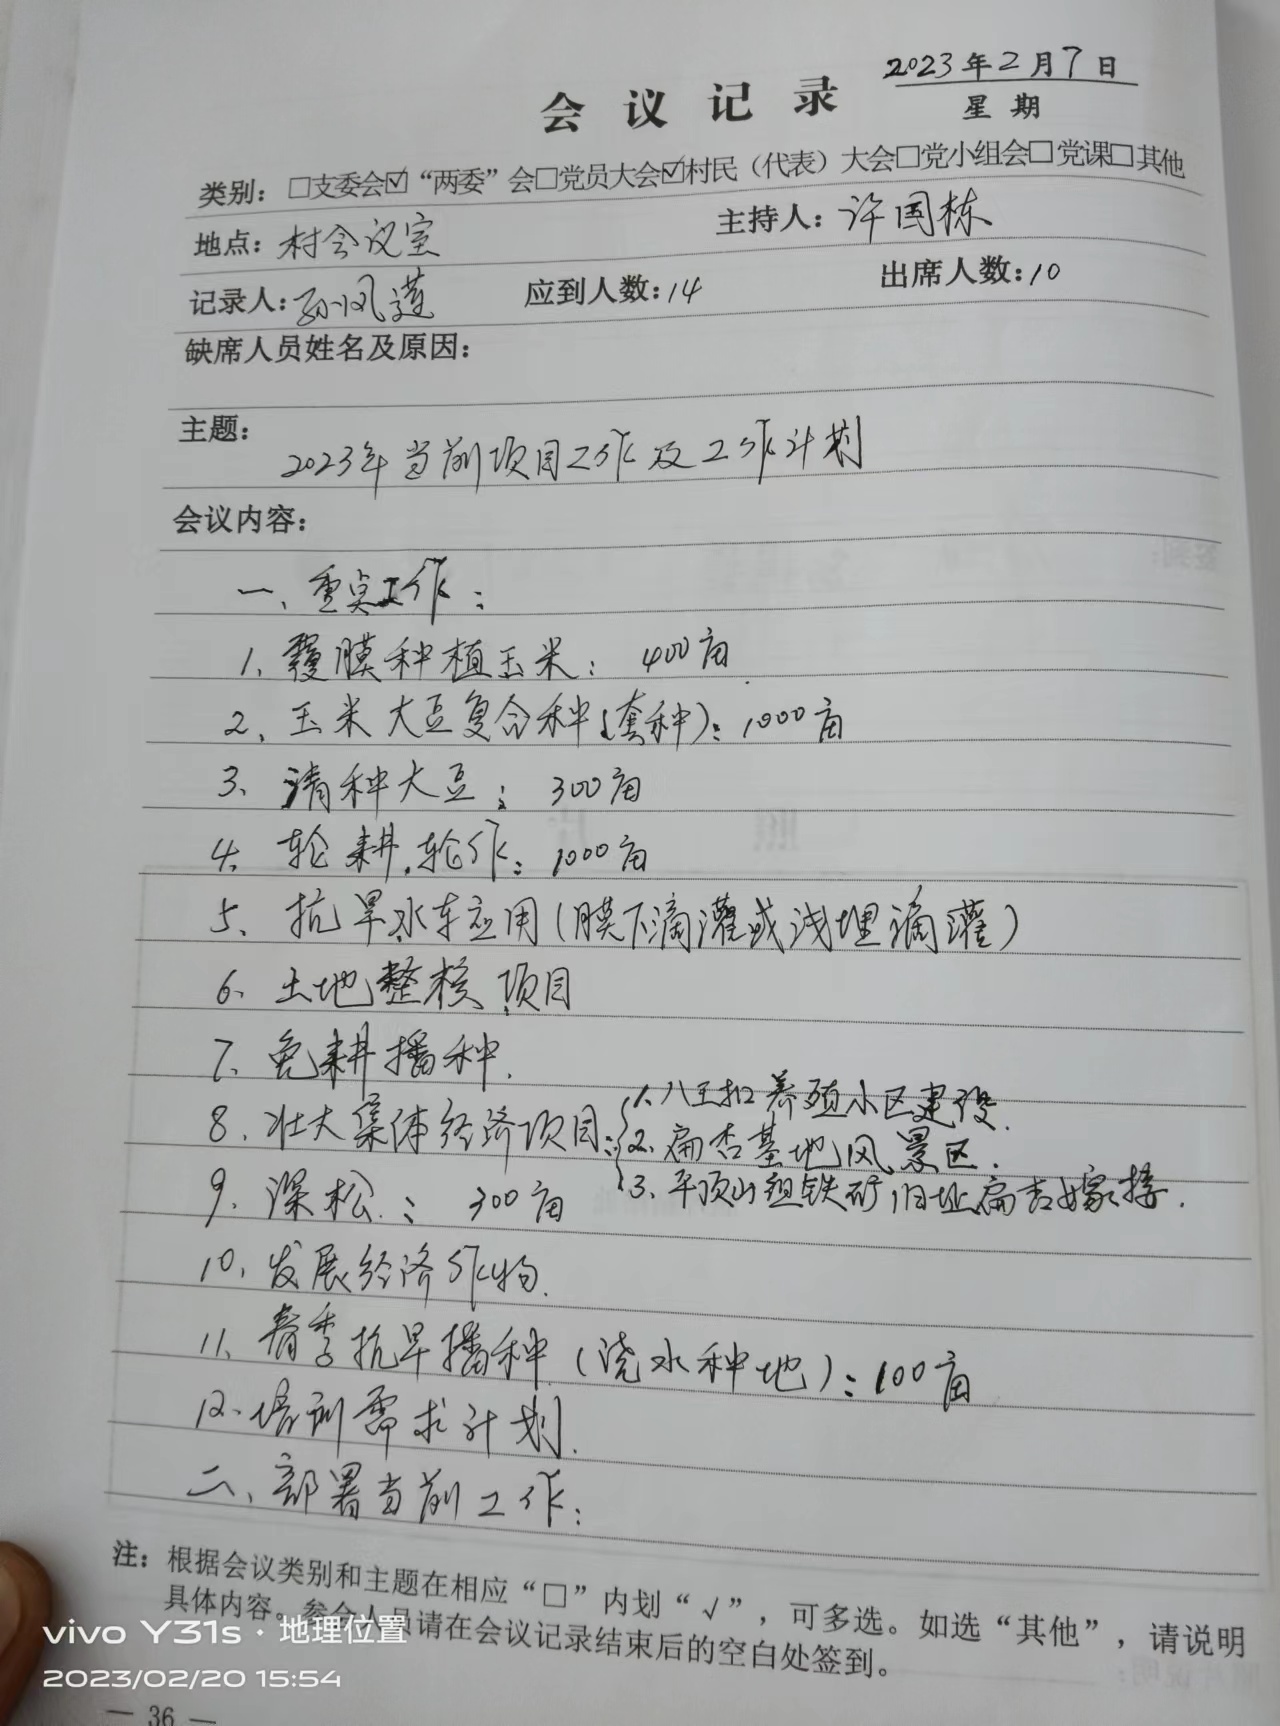 2023年2月7日
会议记录
星期
类别：□支委会☑“两委”会□党员大会☑村民（代表）大会□党小组会□党课□其他
地点：村会议室 主持人：许国栋
记录人：孙凤莲 应到人数：14 出席人数：10
缺席人员姓名及原因：
主题：
2023年当前项目工作及工作计划
会议内容：
一、重点工作：
1、覆膜种植玉米：400亩
2、玉米大豆复合种（套种）：1000亩
3、清种大豆：300亩
4、轮耕.轮作：1000亩
5、抗旱水车应用（膜下滴灌或浅埋滴灌）
6、土地整核项目
7、免耕播种.
8、壮大集体经济项目：1、八王扣养殖小区建设.
2、扁杏基地风景区.
3、平顶山组铁矿旧址扁杏嫁接.
9、深松：300亩
10、发展经济作物.
11、春季抗旱播种（浇水种地）：100亩
12、培训需求计划.
二、部署当前工作：
注：根据会议类别和主题在相应“□”内划“√”，可多选。如选“其他”，请说明
具体内容。参会人员请在会议记录结束后的空白处签到。
vivo Y31s·地理位置
2023/02/20 15:54
— 36 —